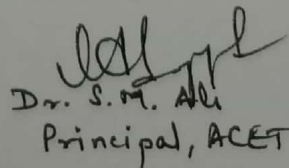 Dr. S. M. Ali
Principal, ACET